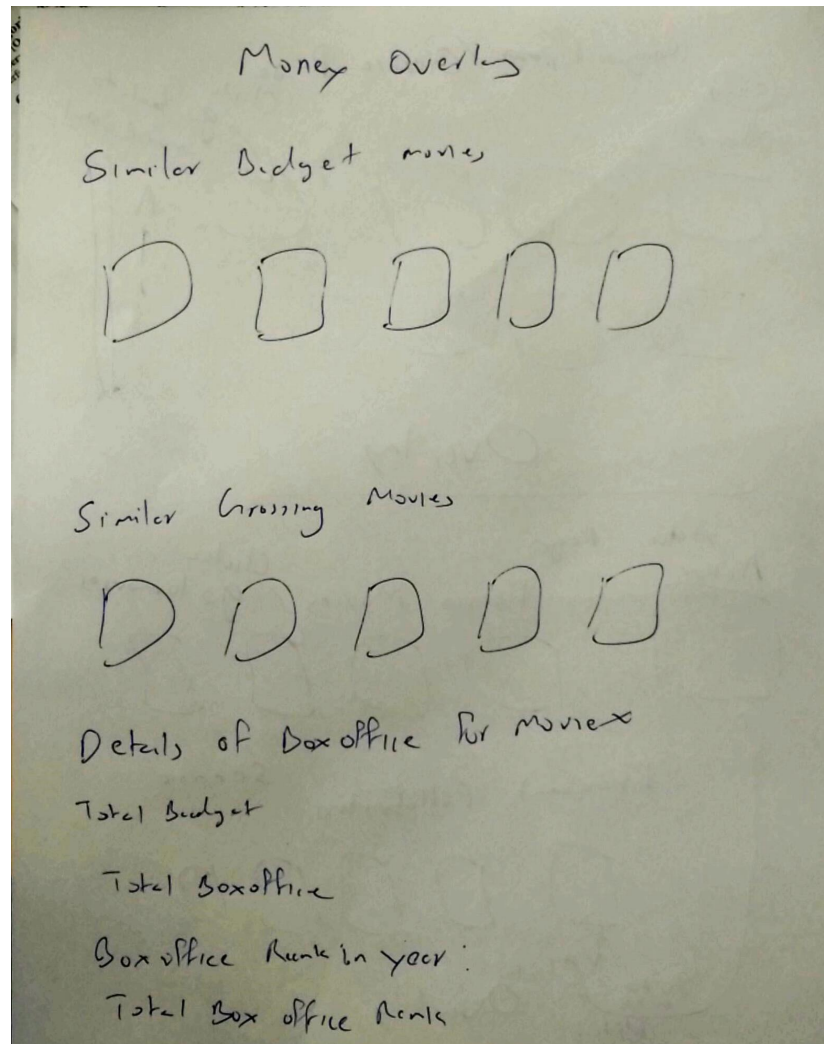 Money Overlay
Similar Budget movies
Similar Grossing Movies
Details of Boxoffice for Movie x
Total Budget
Total Boxoffice
Boxoffice Rank in year:
Total Box office Rank